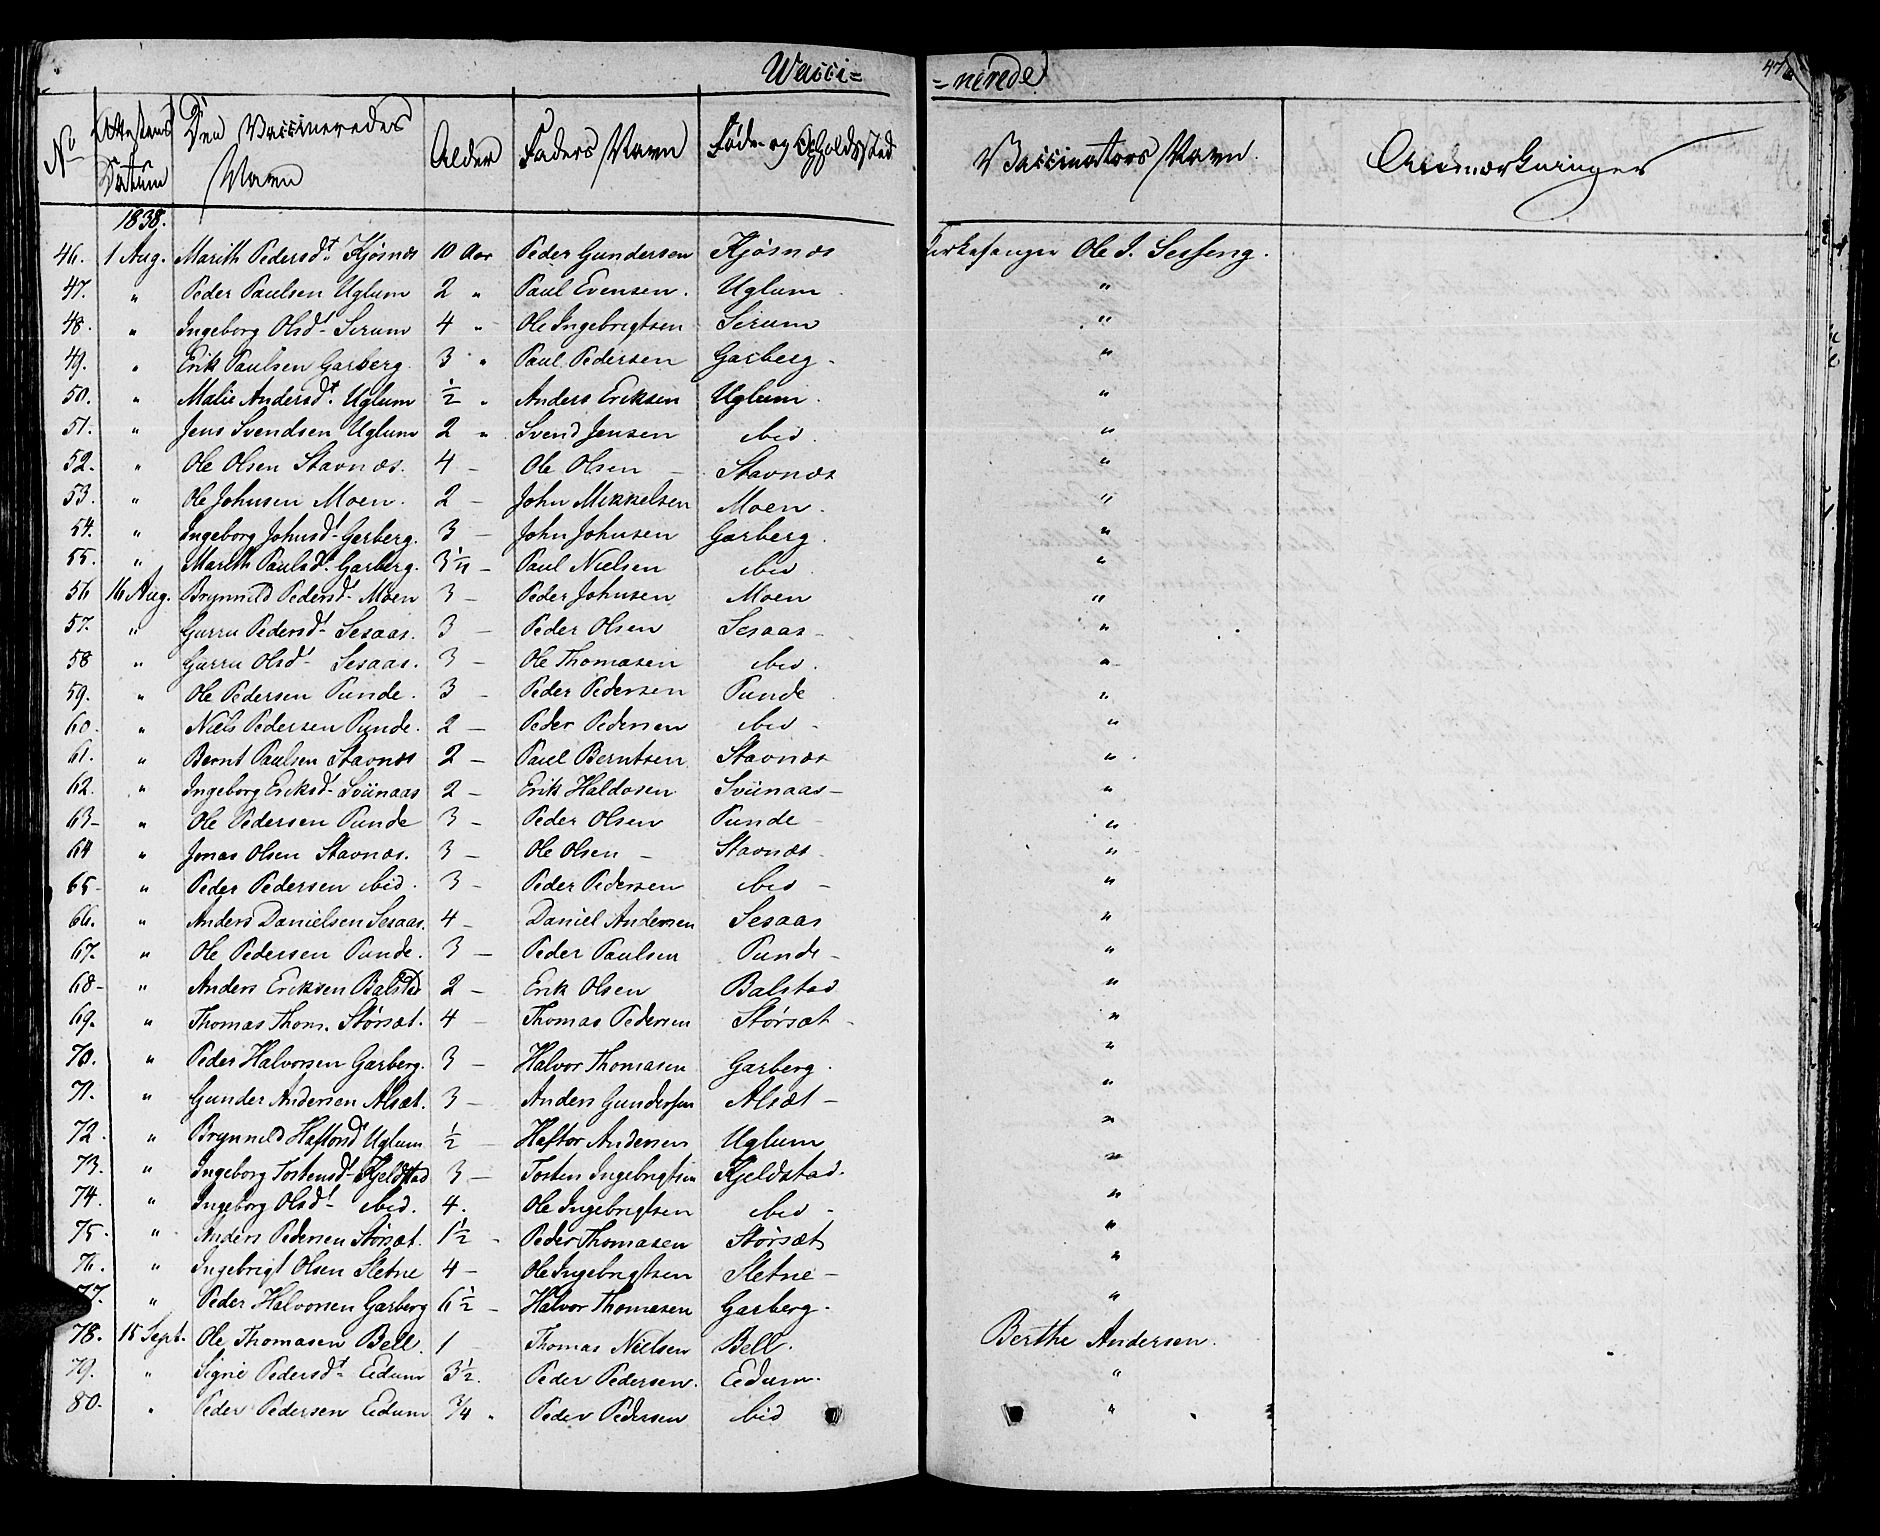 Wacci= =nerede 476
No Attestens Datum Den Vaccineredes Navn Alder Faders Navn Føde- og Opholdssted Vaccinators Navn. Anmærkninger
1838.
46. 1 Aug. Marith Pedersdt Kjøsnæs 10 Aar Peder Gundersen Kjøsnæs Kirkesanger Ole J. Sesseng.
47. " Peder Paulsen Uglum 2 " Paul Evensen. Uglum "
48. " Ingeborg Olsdt Serum 4 " Ole Ingebrigtsen Serum "
49. " Erik Paulsen Garberg. 3 " Paul Pedersen Garberg "
50. " Malie Andersdt Uglum ½ " Anders Eriksen Uglum. "
51. " Jens Svendsen Uglum 2 " Svend Jensen ibid. "
52. " Ole Olsen Stavnæs. 4 — Ole Olsen — Stavnæs "
53. " Ole Johnsen Moen. 2 — John Mikkelsen Moen. "
54. " Ingeborg Johnsdt Garberg. 3 — John Johnsen Garberg. "
55. " Marith Paulsdt Garberg. Paul Nielsen ibid. "
56 16 Aug. Brynnild Pedersdt Moen 3 — Peder Johnsen Moen "
57. " Gurru Pedersdt Sesaas. 3 — Peder Olsen Sesaas "
58 " Gurru Olsdt Sesaas. 3 — Ole Thomasen ibid. "
59. " Ole Pedersen Punde. 3 — Peder Pedersen Punde "
60. " Niels Pedersen Punde. 2 — Peder Pedersen ibid "
61. " Bernt Paulsen Stavnæs 2 — Paul Berntsen Stavnæs "
62. " Ingeborg Eriksdt Sviinaas 2 — Erik Haldosen Sviinaas — "
63 — " Ole Pedersen Punde 3 — Peder Olsen Punde — "
64 " Jonas Olsen Stavnæs. 3 — Ole Olsen — Stavnæs "
65 — " Peder Pedersen ibid. 3 — Peder Pedersen ibid — "
66. " Anders Danielsen Sesaas. 4 — Daniel Andersen Sesaas "
67. " Ole Pedersen Punde. 3 — Peder Paulsen Punde — "
68 — " Anders Eriksen Balstad 2 — Erik Olsen Balstad "
69. " Thomas Thom. Størsæt. 4 — Thomas Pedersen Størsæt — "
70. " Peder Halvorsen Garberg. 3 — Halvor Thomasen Garberg. "
71. " Gunder Andersen Alsæt. 3 — Anders Gundersen Alsæt — "
72. " Brynnild Haftorsd Uglum ½ — Haftor Andersen Uglum "
73. " Ingeborg Tostensdt Kjeldstad 3 — Tosten Ingebrigtsen Kjeldstad. "
74. " Ingeborg Olsdt ibid. 4. Ole Ingebrigtsen ibid — "
75. " Anders Pedersen Størsæt. 1½ — Peder Thomasen Størsæt "
76. " Ingebrigt Olsen Sletne 4 — Ole Ingebrigtsen Sletne — "
77. " Peder Halvorsen Garberg 6½ — Halvor Thomasen Garberg. "
78. 15 Sept. Ole Thomasen Bell. 1 — Thomas Nielsen Bell. Berthe Andersen.
79. " Signe Pedersdt Eidum 3½. Peder Pedersen. Eidum. "
80. " Peder Pedersen Eidum ¾ " Peder Pedersen ibid "